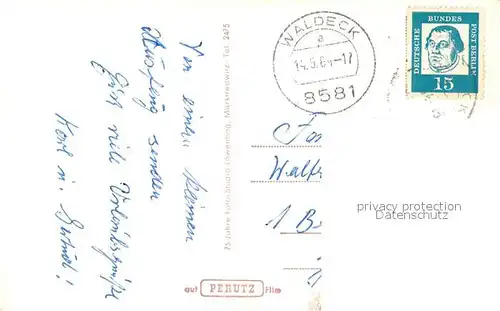 Von einem kleinen
Ausflug senden
Euch viele Urlaubsgrüße
Karl u. Gertrud!
75 Jahre Foto-Studio Löwenhag, Marktredwitz, Tel. 2475
auf PERUTZ Film
WALDECK
a
14.5.64-17
8581
DEUTSCHE BUNDES POST BERLIN
15
Fa
Walt
1 B
privacy protection
Datenschutz